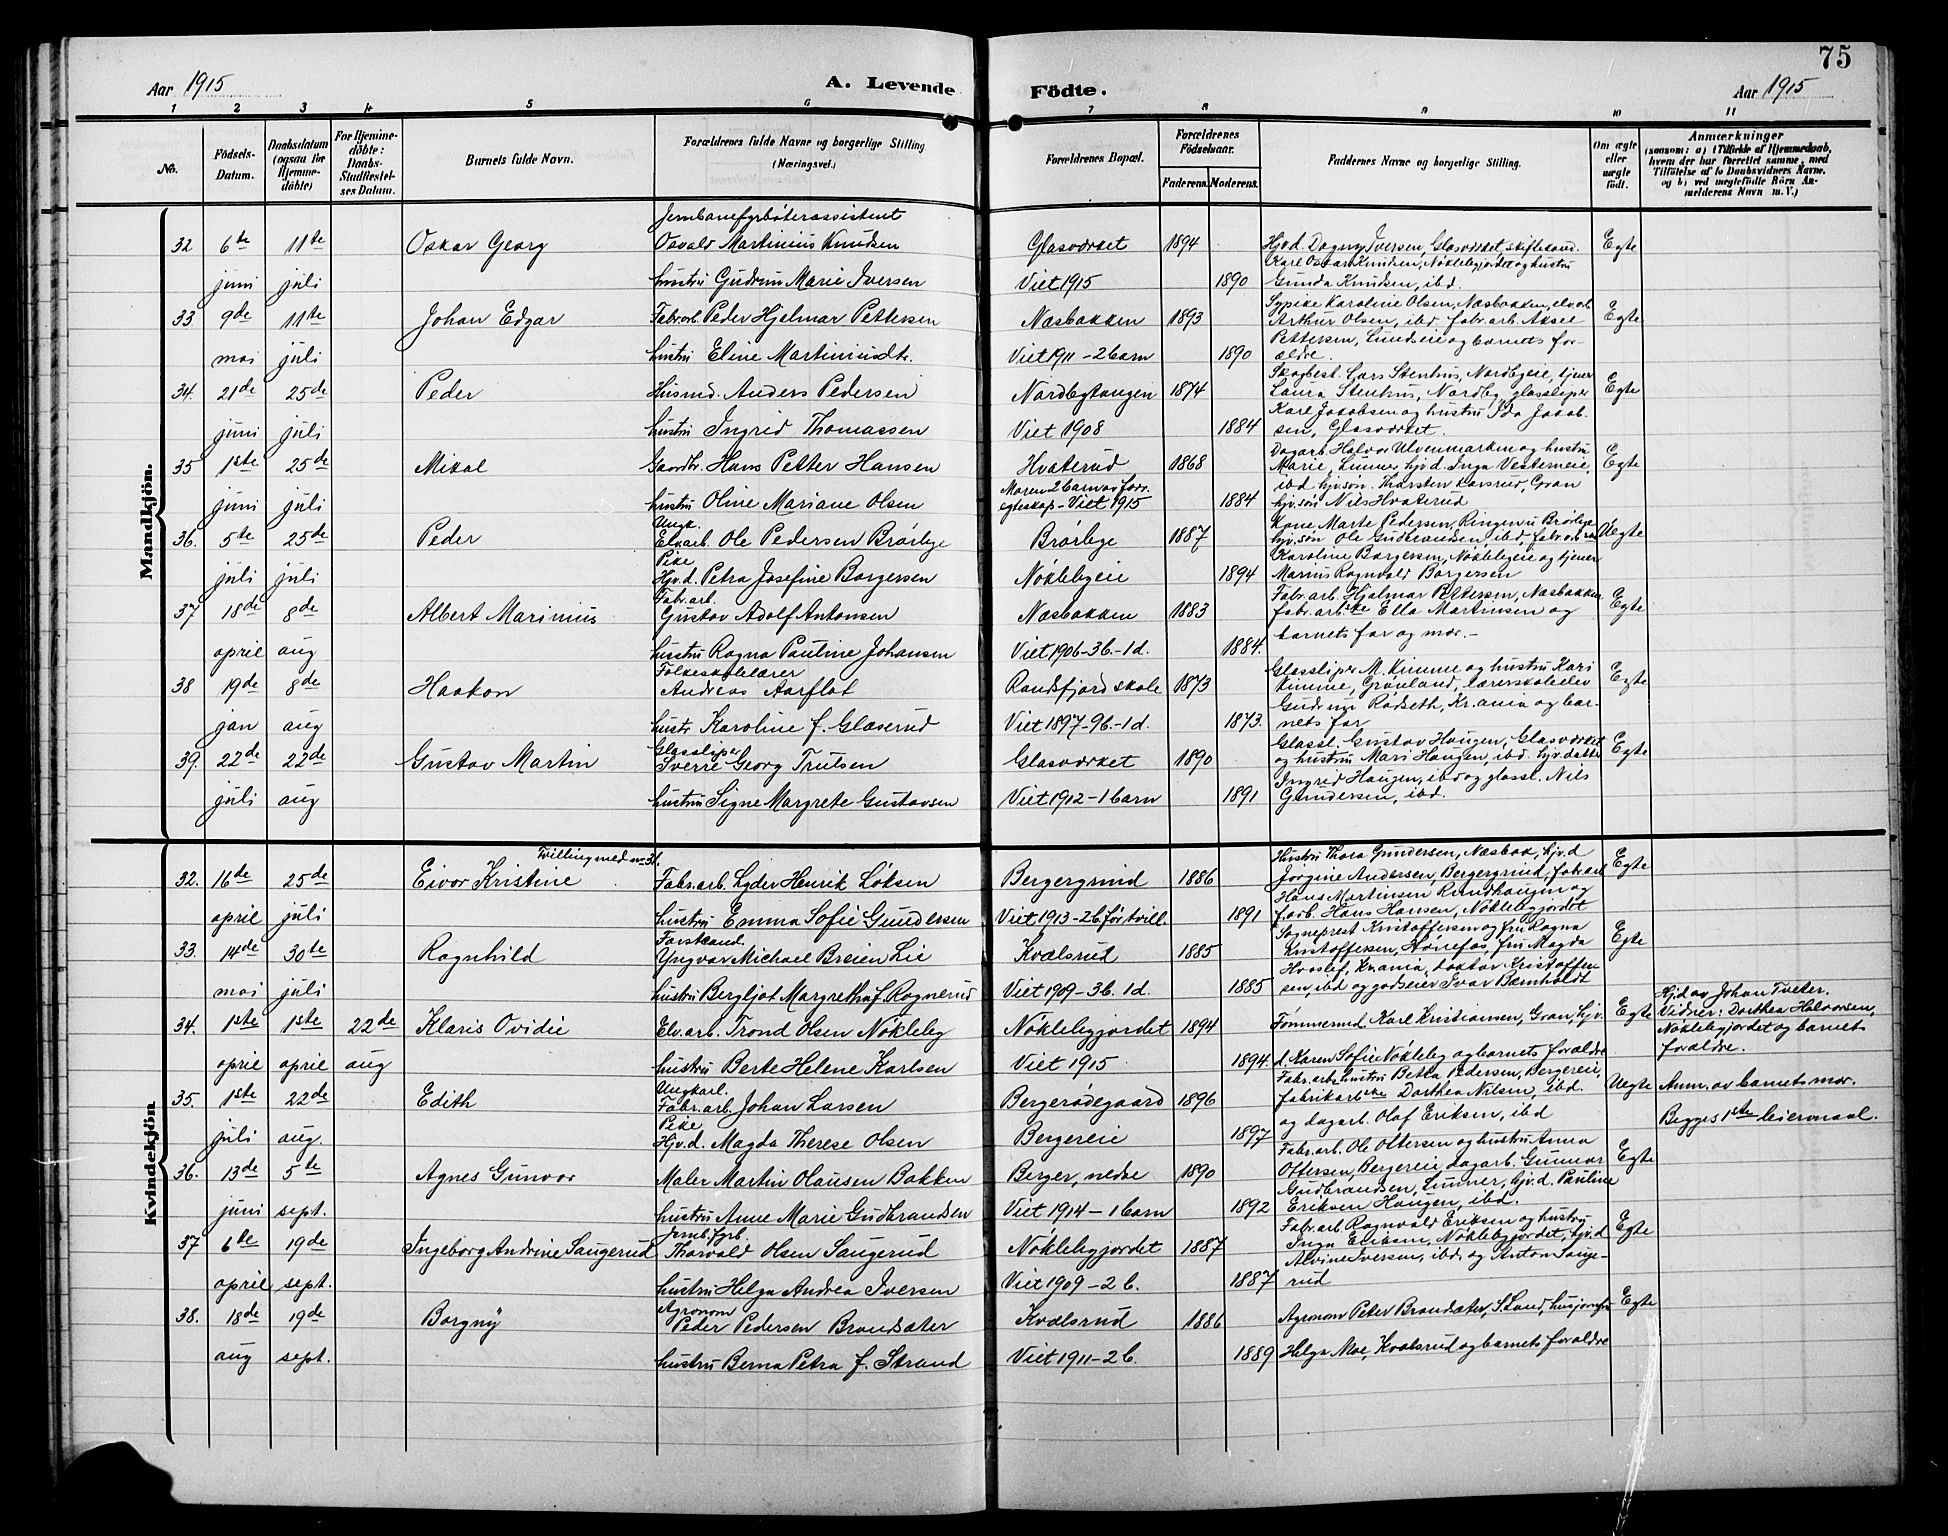 75
Aar 1915
A. Levende
Födte.
Aar 1915
1 2 3 4 5 6 7 8 9 10 11
No.
Födsels-Datum.
Daabsdatum (ogsaa för Hjemmedöbte)
For Hjemmedöbte: Daabs-Stadfestelses Datum.
Barnets fulde Navn.
Forældrenes fulde Navne og borgerlige Stilling (Næringsvei.)
Forældrenes Bopæl.
Forældrenes Födselsaar.
Faderens. Moderens.
Faddernes Navne og borgerlige Stilling.
Om ægte eller uægte födt.
Anmærkninger
(saasom: a) i Tilfælde af Hjemmedaab, hvem der har forrettet samme, med Tilföielse af to Daabsvidners Navne, og b) ved uægtefödte Börn Anmelderens Navn m. V.)
Mandkjön.
Jernbanefyrbøterassistent
32 6te 11te Oskar Georg Osvald Martinius Knudsen Glasværket 1894 Hjv.d. Dagny Iversen, Glasværket, skiftekond. Egte
Karl Oskar Knudsen, Nøklebygjordet og hustru
juni juli hustru Gudrun Marie Iversen Viet 1915 1890 Gunda Knudsen, ibd.
33 9de 11te Johan Edgar Fabr.arb. Peder Hjelmar Pettersen Næsbakken 1893 Sypike Karoline Olsen, Næsbakken, elvarb. Arthur Olsen, ibd. fabr.arb. Aksel Egte
mai juli hustru Eline Martiniusdtr. Viet 1911 - 2 barn 1890 Pettersen, Lundseie og barnets forældre.
34. 21de 25de Peder Husmd. Anders Pedersen Nordbytangen 1874 Skogbest. Lars Stenhus, Nordbyeie, tjener Laura Stenhus, Nordby, glassliper Egte
juni juli hustru Ingrid Thomassen Viet 1908 1884 Karl Jakobsen og hustru Ida Jakobsen, Glasværket.
35 1ste 25de Mikal Gaardbr. Hans Petter Hansen Hvaterud 1868 Dagarb. Halvor Ulvenmarken og hustru Marie, Lunner, hjv.d. Inga Vestemeie, Egte
juni juli hustru Oline Mariane Olsen Moren 2 barn av forr. egteskap - Viet 1915 1884 ibd. hjv.søn. Karsten Gran hjv.søn Nils Hvaterud
36. 5te 25de Peder Ungk. Elvarb. Ole Pedersen Brørbye Brørbye 1887 Kone Marte Pedersen, Brørbye hjv.søn Ole Gudbrandsen, ibd., Uegte
juli juli Pike Hjv.d. Petra Josefine Borgersen Nøklebyeie 1894 Karoline Borgersen, Nøklebyeie og tjener Marius Ragnvald Borgersen
37 18de 8de Albert Marinius Fabr.arb. Gustav Adolf Antonsen Næsbakken 1883 Fabr.arb. Hjalmar Pettersen, Næsbakken fabr.arbske Ella Martinsen og Egte
april aug hustru Ragna Pauline Johansen Viet 1906 - 3b. - 1d. 1884. barnets far og mor.-
38 19de 8de Haakon Folkeskolelærer Andreas Aarflot Randsfjord skole 1873 Glassliper M. Kimme og hustru Kari Kimme, Grønland, Lærerskoleelev Egte
jan aug hustr. Karoline f. Glaserud Viet 1897 - 9b. - 1d. 1873. Gudrun Rødseth, Kr.ania og barnets far
39. 22de 22de Gustav Martin Glassliper Sverre Georg Trulsen Glasværket 1890 Glassl. Gustav Haugen, Glasværket og hustru Mari Haugen, ibd. hjv.datter Egte
juli aug hustru Signe Margrete Gustavsen Viet 1912 - 1 barn 1891 Ingrid Haugen, ibd. og glassl. Nils Gundersen, ibd.
Kvindekjön
Tvilling med nr 31.
32. 16de 25de Eivor Kristine Fabr.arb. Lyder Henrik Løksen Bergergrind 1886 Hustru Thora Gundersen, Næsbak, hjv.d Jørgine Andersen, Bergergrind, fabr.arb Egte
april juli hustru Emma Sofie Gundersen Viet 1913 - 2b før tvill. 1891 Hans Martinsen Rundhaugen og farb. Hans Hansen, Nøklebygjordet
33. 14de 30te Ragnhild Forstkand. Yngvar Michael Breien Lie Kvælsrud 1885 Sogneprest Kristoffersen og fru Ragna Kristoffersen, Hønefos, fru Magda Egte
mai juli hustru Bergljot Margrethe f. Rognerud Viet 1909 - 3b. 1d. 1885 Hvoslef, Kr.ania, doktor Kristoffersen, ibd og godseier Ivar Bernholdt
34. 1ste 1ste 22de Klaris Ovidie Elv.arb. Trond Olsen Nøkleby Nøklebygjordet 1894 Tømmermd. Karl Kristiansen, Gran, hjv. Egte Hjd av Johan Tveter. Vidner: Dorthea Halvorsen, Nøklebygjordet og barnets forældre.
april april aug hustru Berte Helene Karlsen Viet 1915 1894. d. Karen Sofie Nøkleby og barnets forældre
35. 1ste 22de Edith Ungkarl. Fabr.arb. Johan Larsen Bergerødegaard 1896 Fabr.arbs hustru Betta Pedersen, Bergereie, fabrikarbske Dorthea Nilsen, ibd. Uegte Anm. av barnets mor.
juli aug. Pike Hjv.d. Magda Therese Olsen Bergereie 1897 og dagarb. Olaf Eriksen, ibd Begges 1ste leiermaal.
36. 13de 5te Agnes Gunvor Maler Martin Olausen Bakken Berger, nedre 1890 Fabr.arb. Ole Ottersen og hustru Anna Ottersen, Bergereie dagarb. Gunnar Egte
juni sept. hustru Anne Marie Gudbrandsen Viet 1914 - 1 barn 1892 Gudbrandsen, Lunner, hjv.d. Pauline Eriksen Haugen, ibd.
37 6te 19de Ingeborg Andrine Saugerud Jernb.fyrb. Thorvald Olsen Saugerud Nøklebygjordet 1887 Fabr.arb. Ragnvald Eriksen og hustru Inga Eriksen, Nøklebygjordet, hjv.d Egte
april sept. hustru Helga Andrea Iversen Viet 1909 - 2b. 1887 Alvine Iversen, ibd, og Anton Saugerud
38. 18de 19de Borgny Agronom Peder Pedersen Brandsæter Kvælsrud 1886 Agronom Peter Brandsæter, S. Land, husjomfru Egte
aug sept. hustru Berna Petra f. Strand Viet 1911 - 2b. 1889 Helga Moe, Kvælsrud og barnets forældre